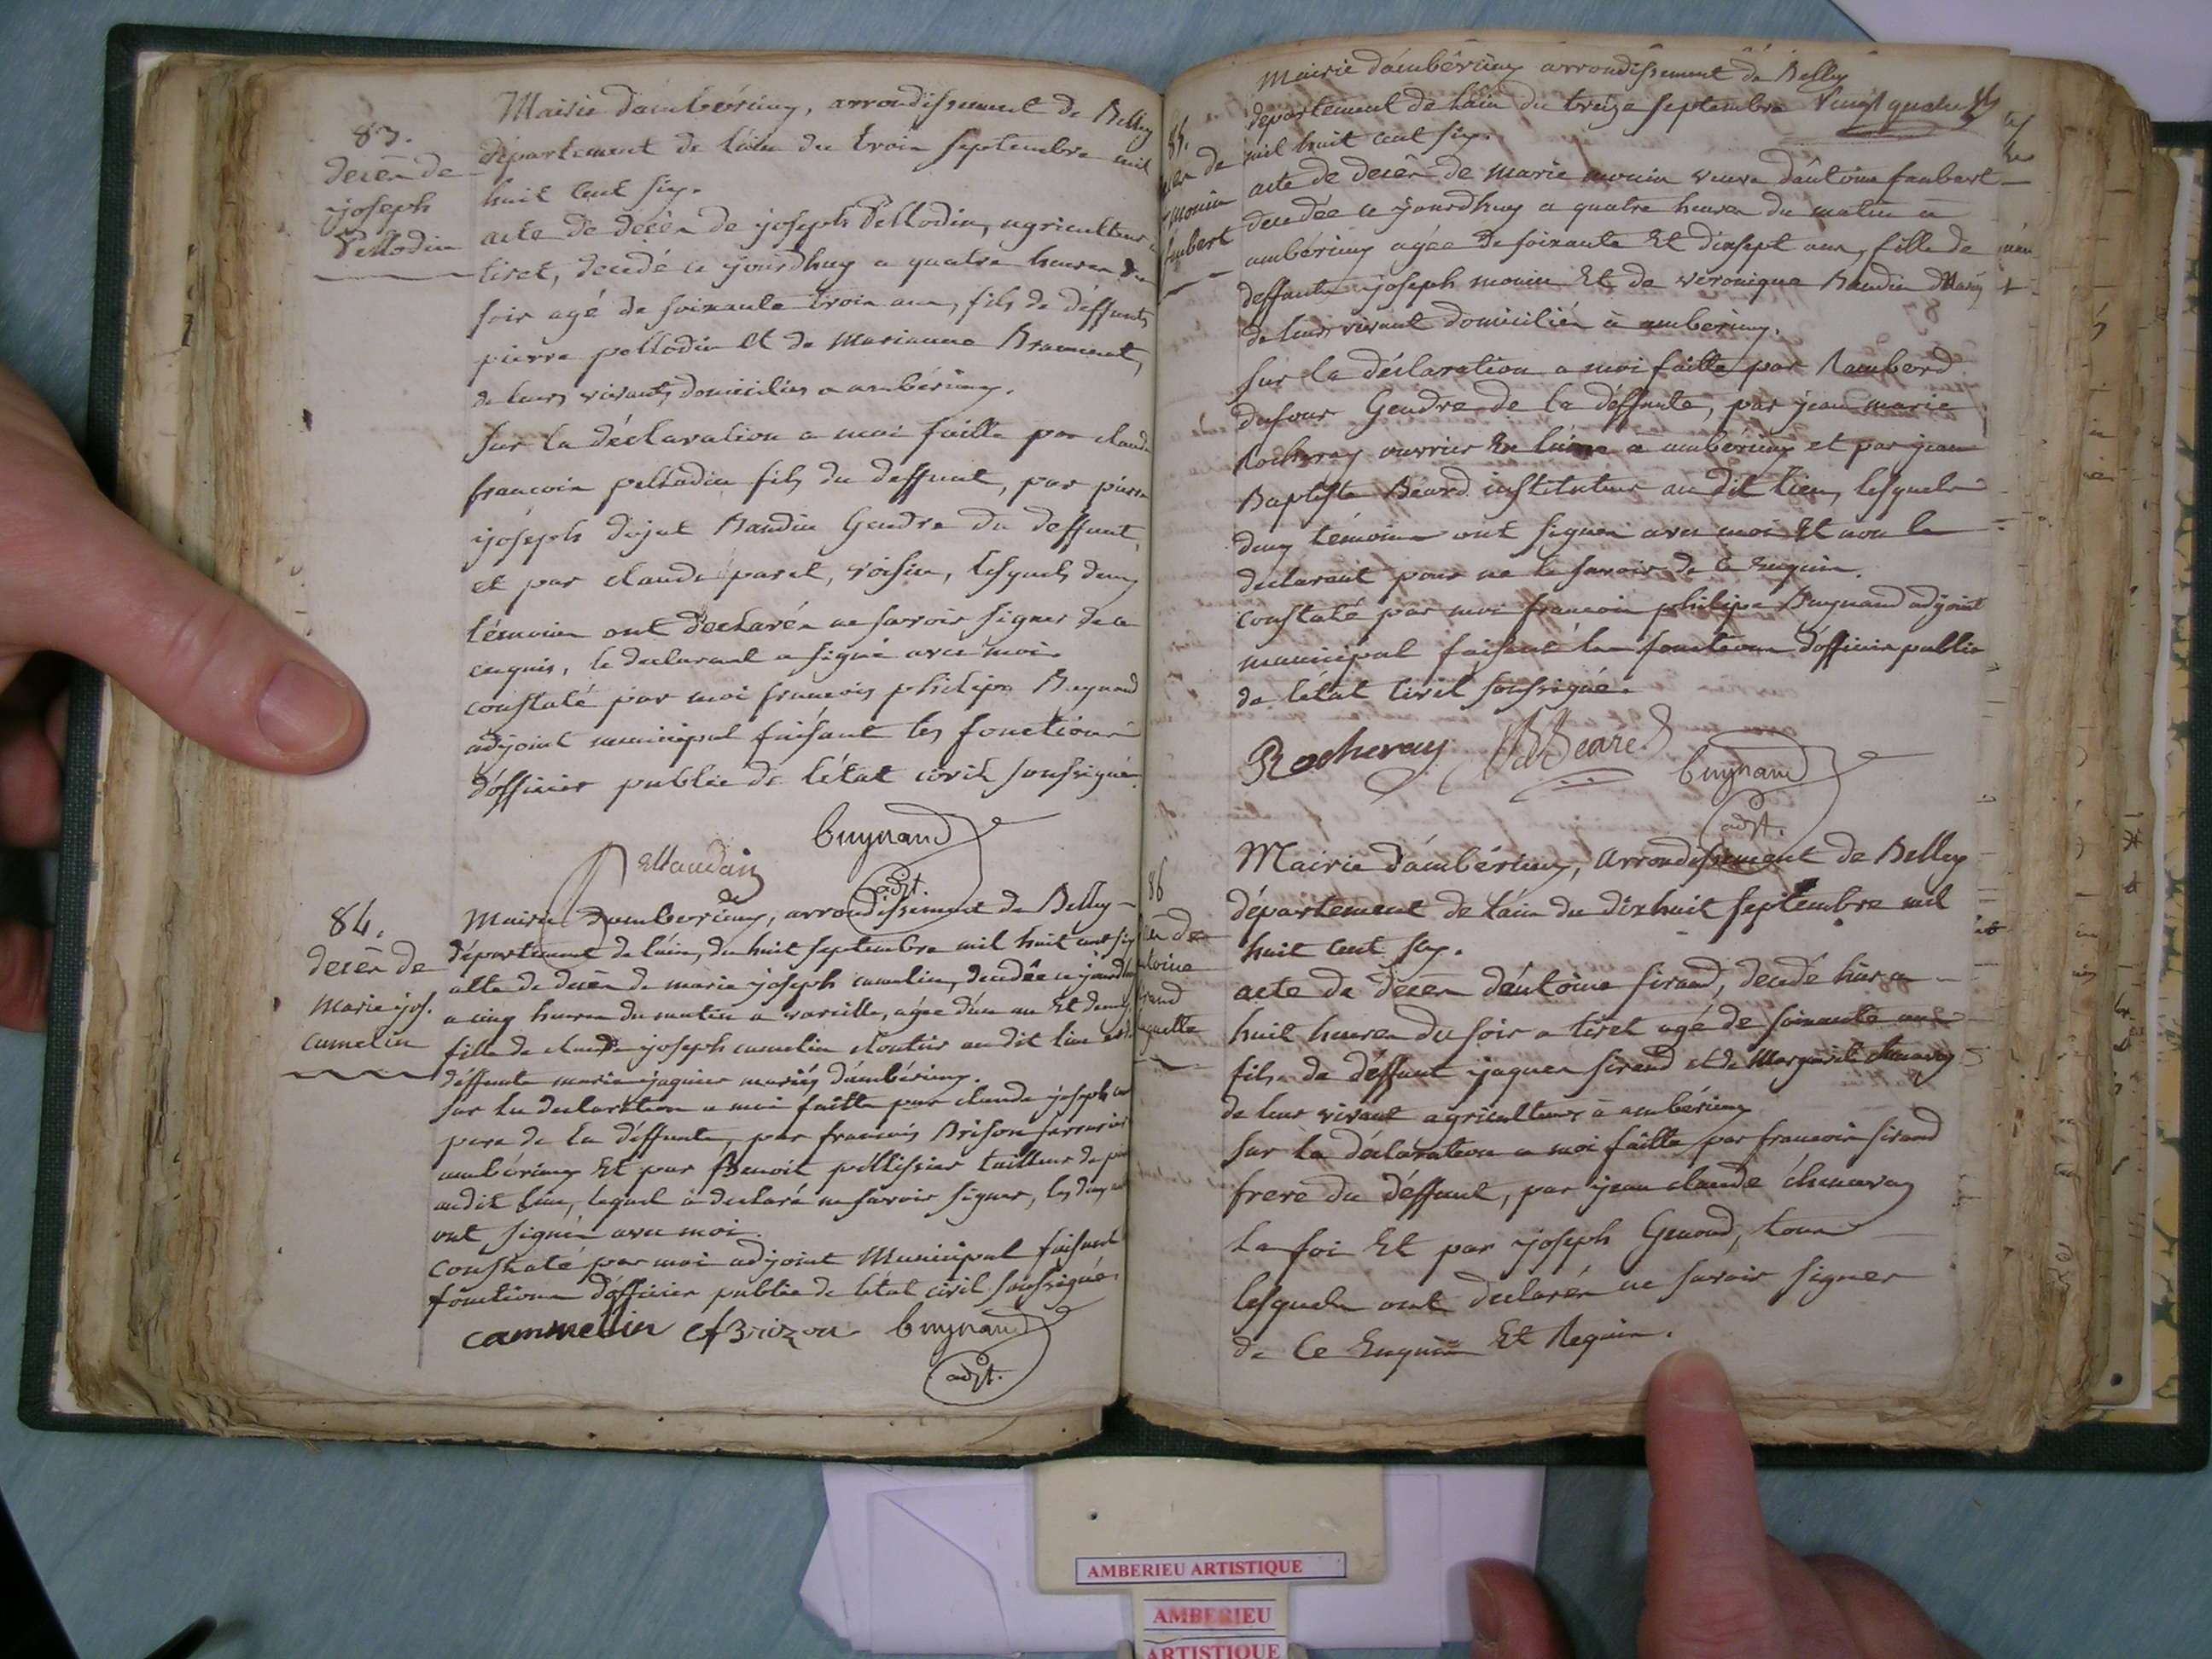 83.
decès de
joseph
Pellodin
Mairie d'ambérieux, arrondissement de Belley
département de l'ain du trois septembre mil
huit cent six.
acte de décès de joseph Pellodin, agriculteur a
tiret, décédé ce jourdhuy a quatre heures du
soir agé de soixante trois ans, fils de deffunts
pierre pellodin et de Marianne
de leurs vivants domiciliés a ambérieux.
sur la déclaration a moi faitte par claude
francois pellodin fils du deffunt, par pierre
joseph dujat Baudin Gendre du deffunt,
et par claude paret, voisin, lesquels deux
témoins ont déclarés ne savoir signer de ce
enquis, le declarant a signé avec moi.
constaté par moi francois philipe Bugnand
adjoint municipal faisant les fonctions
d'officier public de l'état civil soussigné.
bugnand
adjt.
84.
decès de
Marie jos.
Cumelin
Mairie d'amberieux, arrondissement de Belley
département de l'ain, du huit septembre mil huit cent six
acte de décès de marie joseph cumelin, decedée ce jourdhuy
a cinq heures du matin a vareille, agée d'un an Et demy
fille de claude joseph cumelin cloutier au dit lieu et de
déffunte marie jaquier mariés d'ambérieux.
sur la declaration a moi faitte par claude joseph
pere de la déffunte, par francois Brison serrurier
ambérieux Et par Benoit péllissier tailleur de
audit lieu, lequel a declaré ne savoir signer, les deux
ont signés avec moi.
constaté par moi adjoint Municipal faisant
fonctions d'officier public de l'état civil soussigné.
cammellin cf Brizon bugnand
adjt.
Mairie d'ambérieux arrondissement de Belley
departement de l'ain du treize septembre Vingt quatre
mil huit cent six.
85.
de
monin
faubert
acte de decès de marie monin veuve d'antoine faubert
decedée ce jourdhuy a quatre heures du matin a
ambérieux agée de soixante Et dixsept ans, fille de
deffunts joseph monin Et de véronique Baudin
de leurs vivant domiciliés à ambérieux.
sur la déclaration a moi faitte par Rambord
dufour Gendre de la deffunte, par jean marie
Rocheray ouvrier En laine a ambérieux et par jean
Baptiste Béard instituteur au dit lieu, lesquels
deux témoins ont signés avec moi Et non le
declarant pour ne le savoir de ce enquis.
constaté par moi francois philipe Bugnand adjoint
municipal faisant les fonctions d'officier public
de l'état civil soussigné.
Rocheray JB Beard bugnand
adjt.
86
Mairie d'ambérieux, arrondissement de Belley
département de l'ain du dixhuit septembre mil
huit cent six.
acte de décès d'antoine sirand, decedé hier a
huit heures du soir a tiret agé de soixante ans
fils de déffunt jaques sirand et de Marguerite chenavas
de leur vivant agriculteurs à ambérieux
sur la déclaration a moi faitte par francois sirand
frere du déffunt, par jean claude chenavas
la foi Et par joseph Genoud, tous
lesquels ont declarés ne savoir signer
de Ce Enquis Et Requis.
AMBERIEU ARTISTIQUE
AMBERIEU
ARTISTIQUE